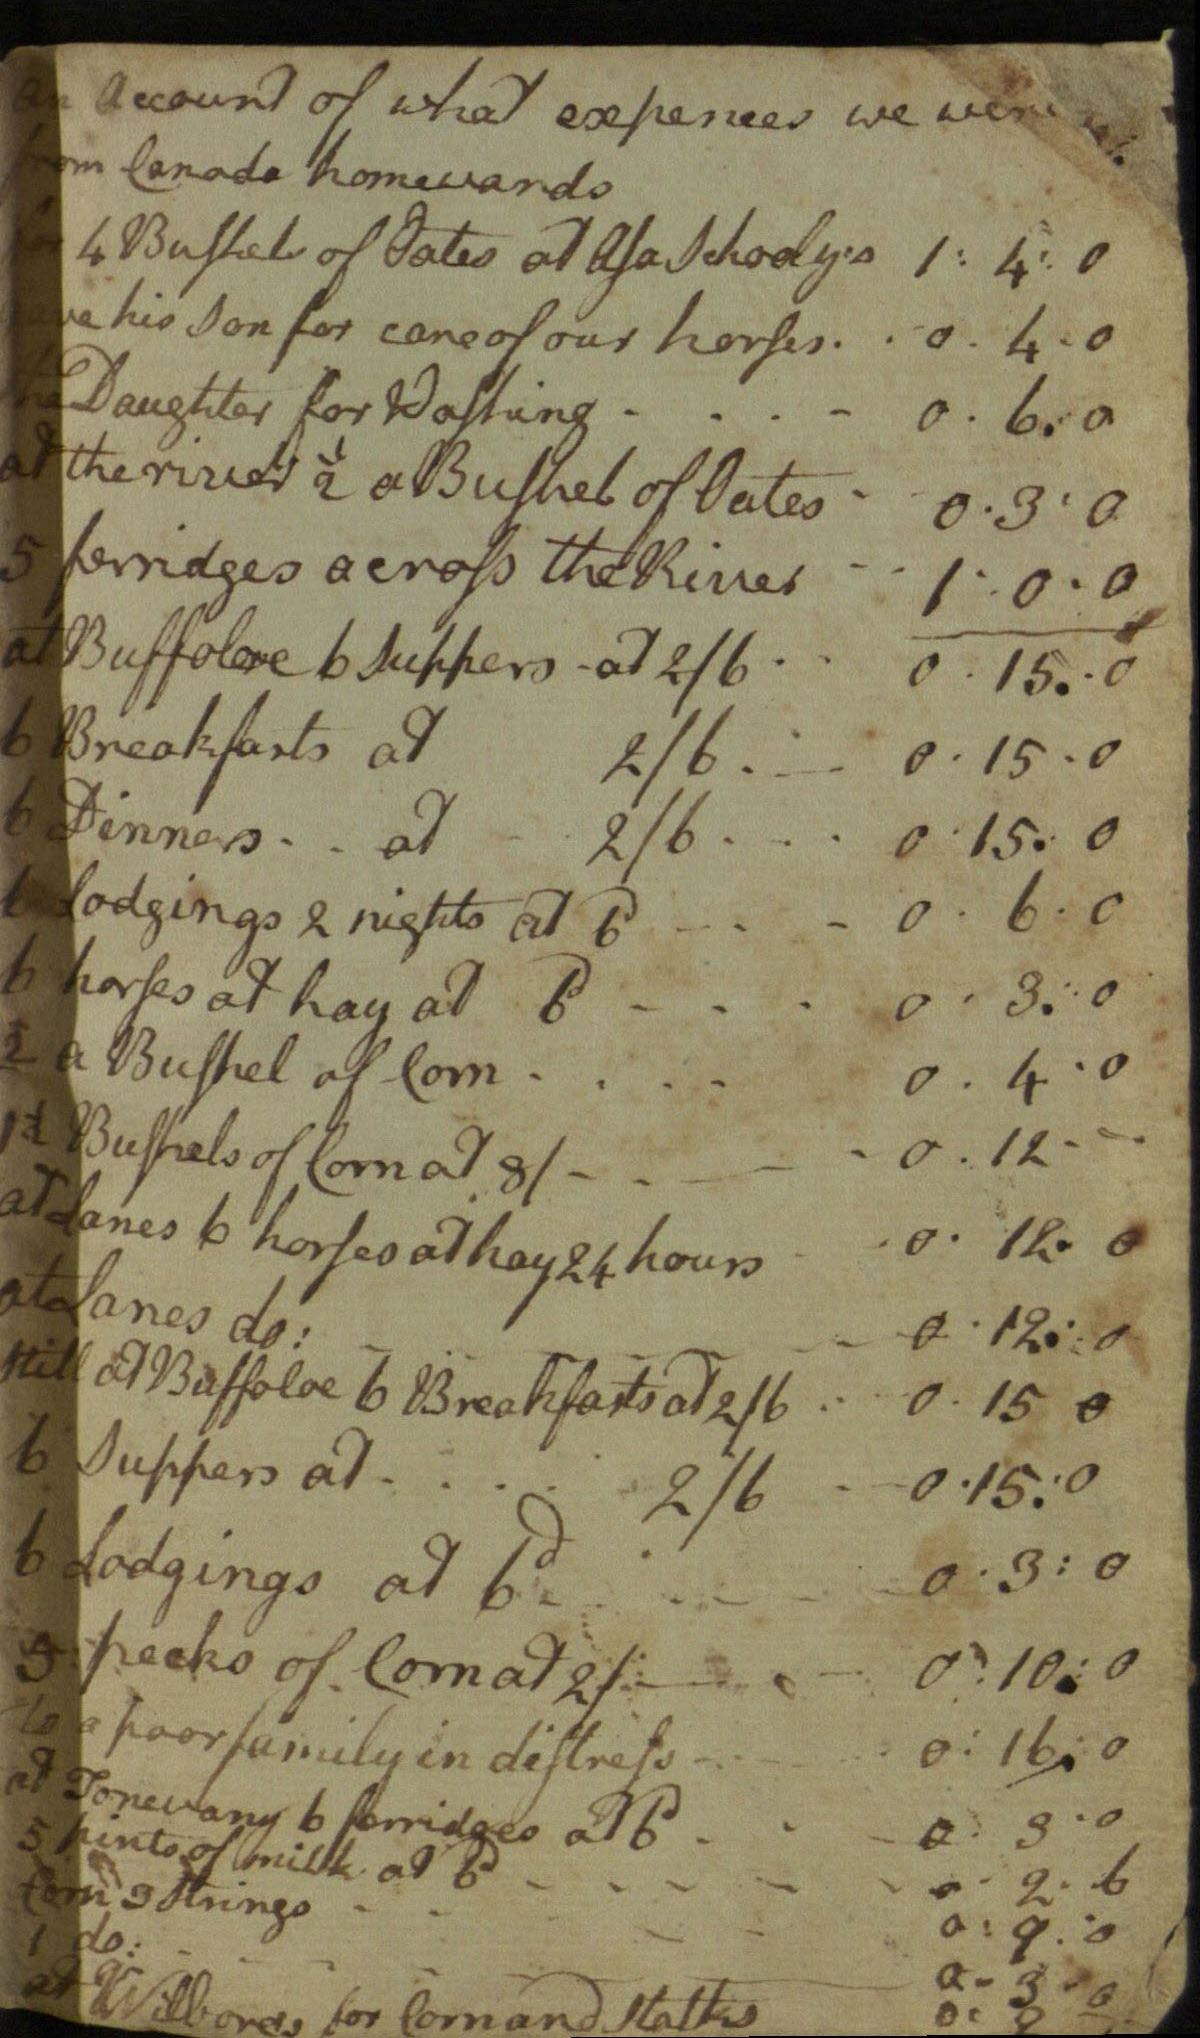 an account of what expences we were at
from Canada homewards
for 4 Bushels of Oates at Asa Schoolys 1: 4: 0
gave his Son for care of our horses. . 0. 4. 0
the Daughter for Washing - . . . - 0. 6. 0
at the river 1/2 a Bushel of Oates - 0. 3. 0
5 ferridges across the River - - 1. 0. 0
at Buffoloe 6 Suppers at 2/6 . . 0. 15. 0
6 Breakfasts at 2/6 . - 0. 15. 0
6 Dinners. . at 2/6 . . . 0. 15: 0
6 Lodgings 2 nights at 6d - - . - 0. 6. 0
6 horses at hay at 6d - - - . 0. 3: 0
1/2 a Bushel of Corn . . . . 0. 4. 0
1 1/2 Bushels of Corn at 8/ - - - 0. 12 - -
at Lanes 6 horses at hay 24 hours 0. 12. 0
at Lanes do: 0. 12: 0
Still at Buffoloe 6 Breakfasts at 2/6 . . 0. 15 0
6 Suppers at . . . . 2/6 - 0. 15: 0
6 Lodgings at 6d - 0. 3: 0
5 pecks of Corn at 2/ - 0: 10: 0
to a poor family in distress - - 0: 16: 0
at Tonewany 6 ferridges at 6d . - 0. 3. 0
5 pints of milk at 6d - - - - - 0. 2. 6
Corn 3 Strings - - 0: 9: 0
1 do: - 0 - 3 - 0
at for Corn and Stalks 0: 9